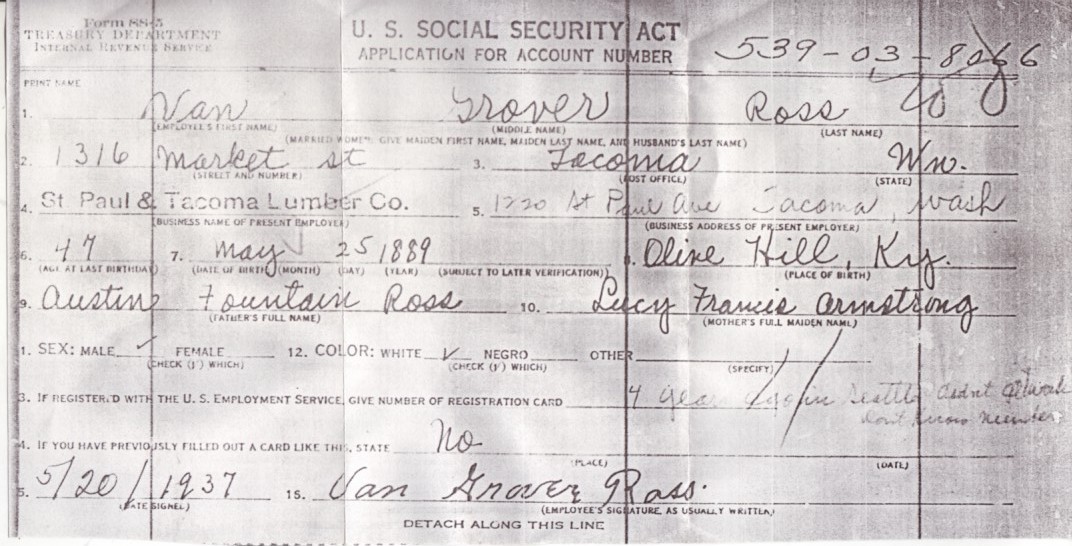 Form SS-5
TREASURY DEPARTMENT
INTERNAL REVENUE SERVICE
U. S. SOCIAL SECURITY ACT
APPLICATION FOR ACCOUNT NUMBER
539-03-
PRINT NAME
1. Van Grover Ross
(EMPLOYEE'S FIRST NAME) (MIDDLE NAME) (LAST NAME)
(MARRIED WOMEN: GIVE MAIDEN FIRST NAME, MAIDEN LAST NAME, AND HUSBAND'S LAST NAME)
2. 1316 Market st 3. Tacoma Wn.
(STREET AND NUMBER) (POST OFFICE) (STATE)
4. St Paul & Tacoma Lumber Co. 5. 1220 St Paul Ave Tacoma, Wash
(BUSINESS NAME OF PRESENT EMPLOYER) (BUSINESS ADDRESS OF PRESENT EMPLOYER)
6. 47 7. May 25 1889 8. Olive Hill, Ky.
(AGE AT LAST BIRTHDAY) (DATE OF BIRTH: (MONTH) (DAY) (YEAR) (SUBJECT TO LATER VERIFICATION)) (PLACE OF BIRTH)
9. Austine Fountain Ross 10. Lucy Francis Armstrong
(FATHER'S FULL NAME) (MOTHER'S FULL MAIDEN NAME)
1. SEX: MALE ✓ FEMALE 12. COLOR: WHITE ✓ NEGRO OTHER
(CHECK (✓) WHICH) (CHECK (✓) WHICH) (SPECIFY)
3. IF REGISTERED WITH THE U. S. EMPLOYMENT SERVICE, GIVE NUMBER OF REGISTRATION CARD 4 years ago in Seattle
dont know number
4. IF YOU HAVE PREVIOUSLY FILLED OUT A CARD LIKE THIS, STATE No
(PLACE) (DATE)
5. 5/20/1937 15. Van Grover Ross.
(DATE SIGNED) (EMPLOYEE'S SIGNATURE, AS USUALLY WRITTEN)
DETACH ALONG THIS LINE